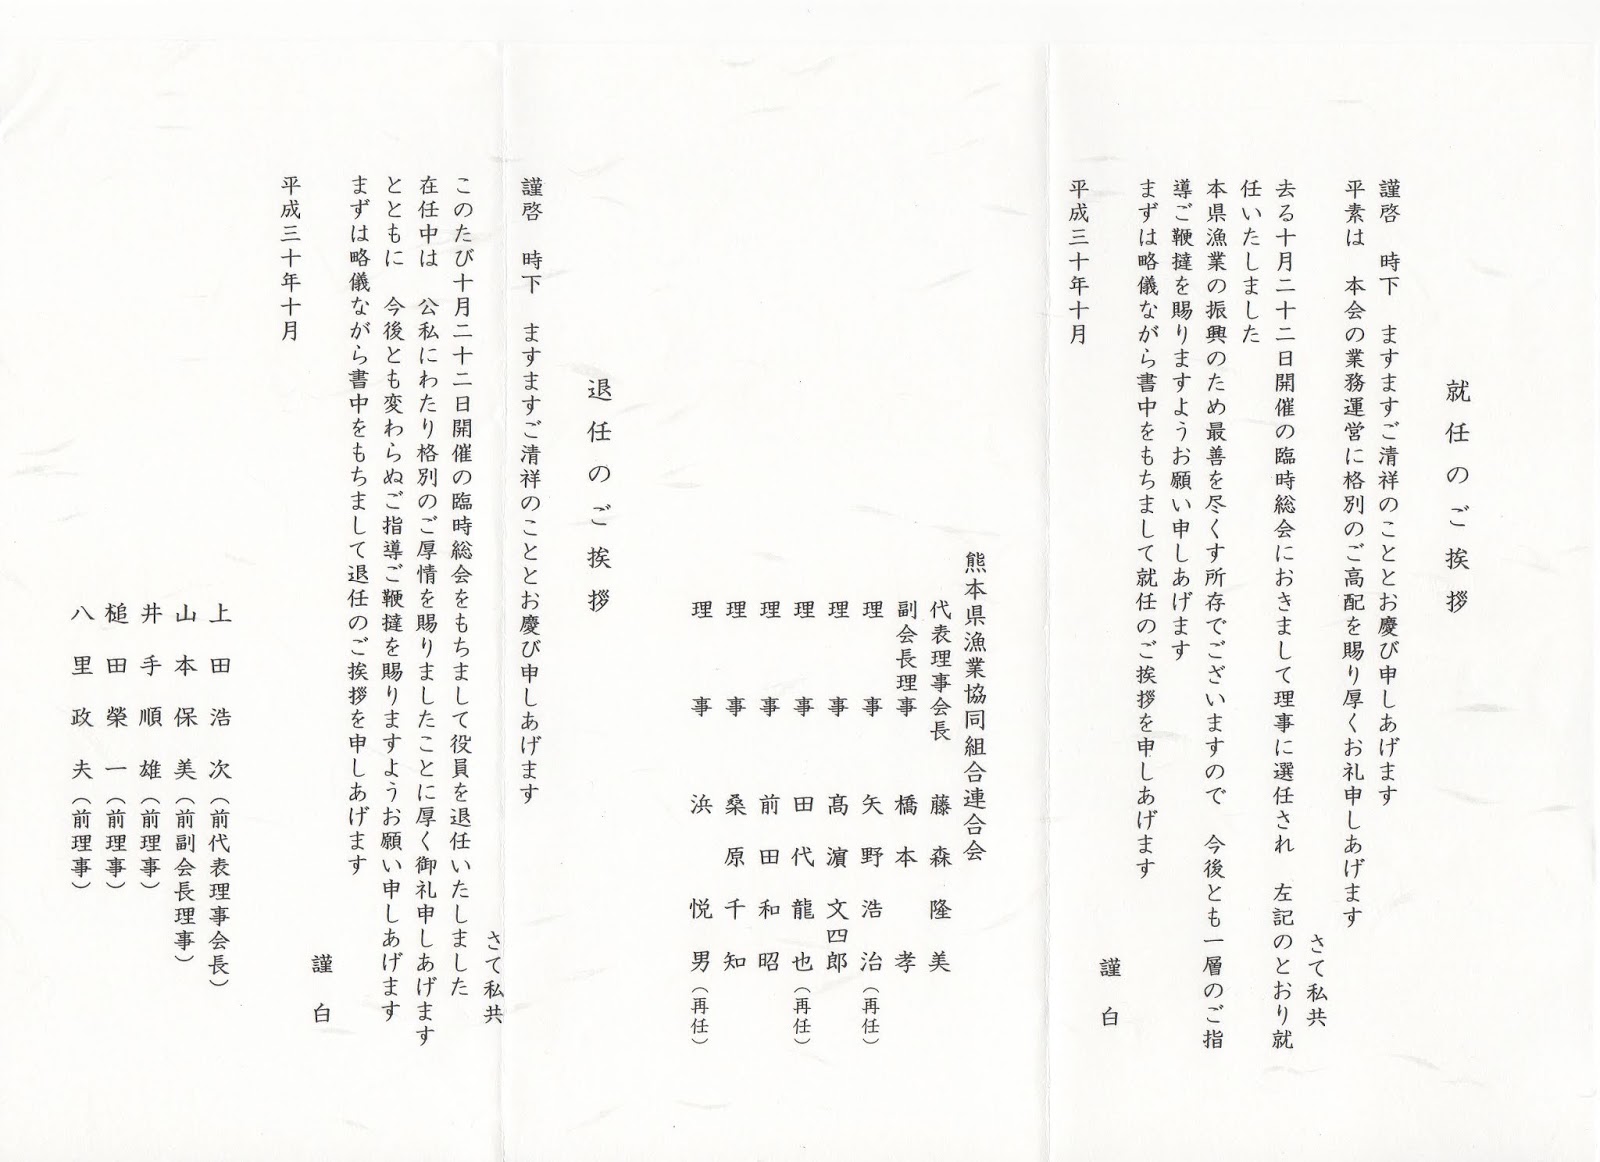 就任のご挨拶
謹啓　時下　ますますご清祥のこととお慶び申しあげます
平素は　本会の業務運営に格別のご高配を賜り厚くお礼申しあげます
さて私共
去る十月二十二日開催の臨時総会におきまして理事に選任され　左記のとおり就
任いたしました
本県漁業の振興のため最善を尽くす所存でございますので　今後とも一層のご指
導ご鞭撻を賜りますようお願い申しあげます
まずは略儀ながら書中をもちまして就任のご挨拶を申しあげます
謹白
平成三十年十月
熊本県漁業協同組合連合会
代表理事会長　藤森隆美
副会長理事　橋本孝
理事　矢野浩治（再任）
理事　髙濵文四郎
理事　田代龍也（再任）
理事　前田和昭
理事　桑原千知
理事　浜悦男（再任）
退任のご挨拶
謹啓　時下　ますますご清祥のこととお慶び申しあげます
さて私共
このたび十月二十二日開催の臨時総会をもちまして役員を退任いたしました
在任中は　公私にわたり格別のご厚情を賜りましたことに厚く御礼申しあげます
とともに　今後とも変わらぬご指導ご鞭撻を賜りますようお願い申しあげます
まずは略儀ながら書中をもちまして退任のご挨拶を申しあげます
謹白
平成三十年十月
上田浩次（前代表理事会長）
山本保美（前副会長理事）
井手順雄（前理事）
槌田榮一（前理事）
八里政夫（前理事）